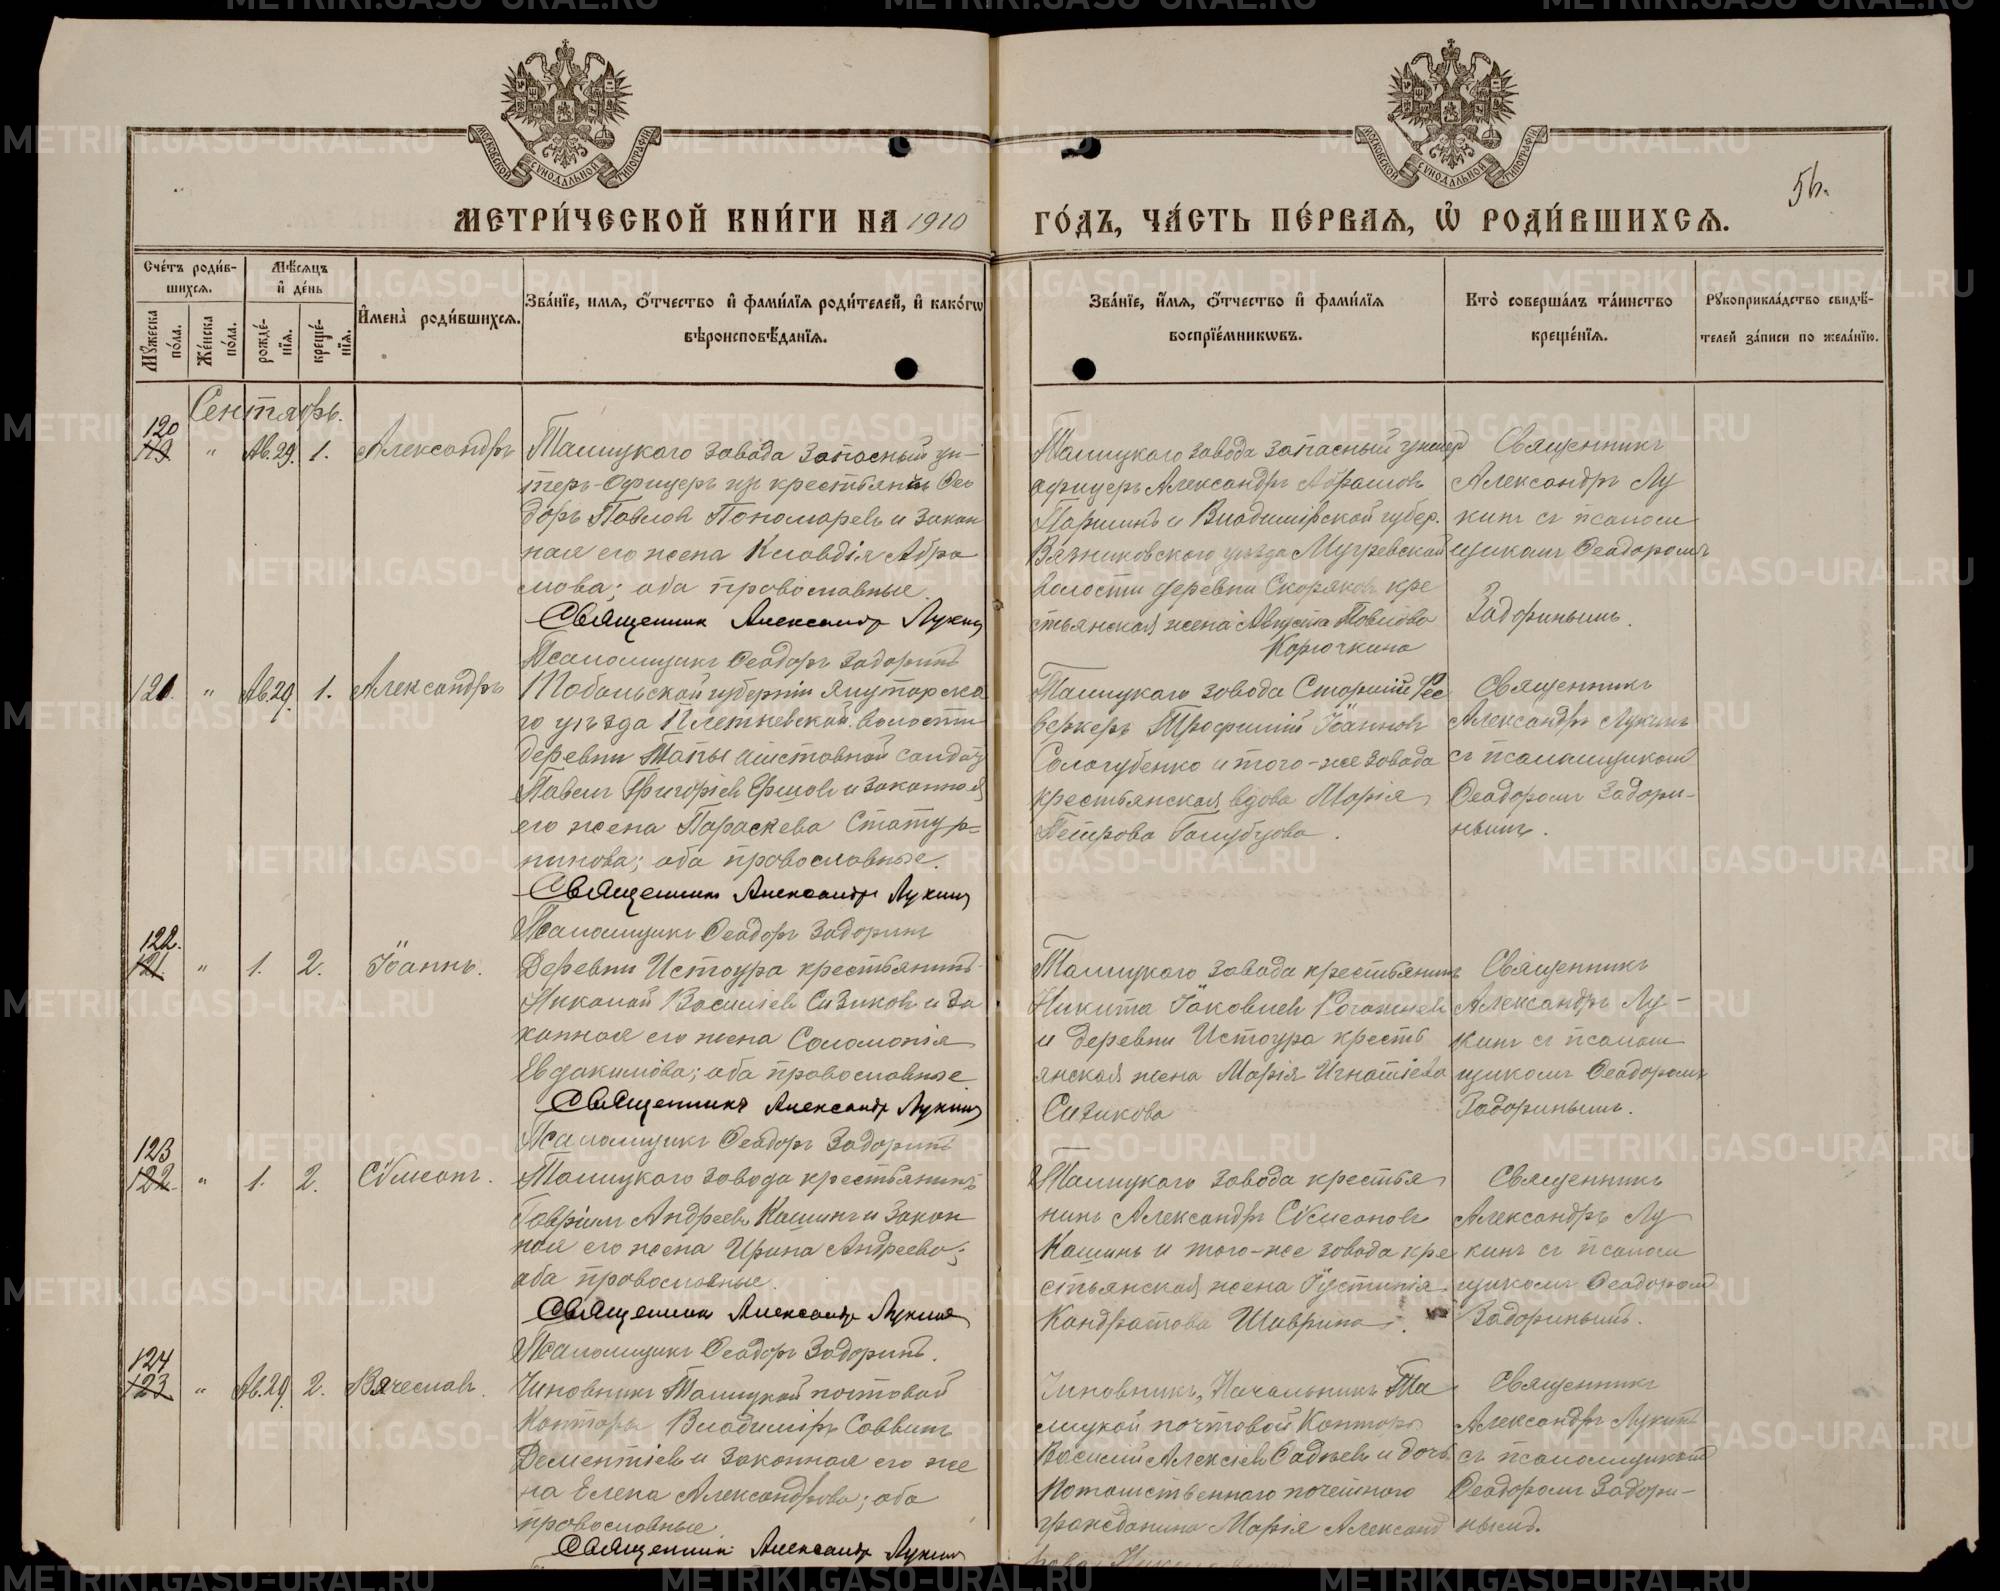 МЕТРИ́ЧЕСКОЙ КНИ́ГИ НА 1910 ГО́ДЪ, ЧА́СТЬ ПЕ́РВАѦ, Ѡ҆ РОДИ́ВШИХСѦ.
56.
Сче́тъ роди́в-
шихсѧ.
Мѣ́сѧцъ
и҆ де́нь
Мꙋ́жеска по́ла.
Же́нска по́ла.
рожде́-
нїѧ.
креще́-
нїѧ.
И҆мена̀ роди́вшихсѧ.
Зва́нїе, имѧ, ѻ҆́тчество и҆ фами́лїѧ роди́телей, и҆ како́гѡ
вѣроисповѣ́данїѧ.
Зва́нїе, и҆́мѧ, ѻ҆́тчество и҆ фами́лїѧ
воспрїе́мникѡвъ.
Кто̀ соверша́лъ та́инство
креще́нїѧ.
Рꙋкоприкла́дство свидѣ́-
телей за́писи по жела́нїю.
Сентябрь.
120
119 " Ав.29. 1. Александръ
Талицкаго завода запасный ун-
теръ-офицеръ из крестьянъ Фео
доръ Павловъ Пономаревъ и закон
ная его жена Клавдія Абра
мова; оба православные.
Священникъ Александръ Лукинъ
Псаломщикъ Феодоръ Задоринъ
Талицкаго завода запасный унтер
офицеръ Александръ Абрамовъ
Паршинъ и Владимірской губер.
Вязниковскаго уѣзда Мугреевской
волости деревни Скоряковъ кре
стьянская жена Августа Павлова
Корючкина
Священникъ
Александръ Лу
кинъ съ псалом
щикомъ Феодоромъ
Задоринымъ.
121. " Ав.29. 1. Александръ
Тобольской губерніи Ялуторска
го уѣзда Плетневской волости
деревни солдатъ
Павелъ Григорьевъ Ершовъ и законная
его жена Параскева Сатур-
нинова; оба православные.
Священникъ Александръ Лукинъ
Псаломщикъ Феодоръ Задоринъ
Талицкаго завода Старшій Фее
верверкеръ Трофимій Іоанновъ
Сологубенко и того-же завода
крестьянская вдова Марія
Петрова Голубцова.
Священникъ
Александръ Лукинъ
съ псаломщикомъ
Феодоромъ Задори-
нымъ.
122.
121. " 1. 2. Іоаннъ.
Деревни Истоура крестьянинъ
Николай Васильевъ Сизиковъ и за
конная его жена Соломонія
Евдокимова; оба православные
Священникъ Александръ Лукинъ
Псаломщикъ Феодоръ Задоринъ
Талицкаго завода крестьянинъ
Никита Іаковлевъ Рогожневъ
и деревни Истоура кресть
янская жена Марія Игнатіева
Сизикова
Священникъ
Александръ Лу-
кинъ съ псалом
щикомъ Феодоромъ
Задоринымъ.
123
122. " 1. 2. Сѵмеонъ.
Талицкаго завода крестьянинъ
Гавріилъ Андреевъ Кашинъ и закон
ная его жена Ирина Андреева;
оба православные.
Священникъ Александръ Лукинъ
Псаломщикъ Феодоръ Задоринъ.
Талицкаго завода крестья
нинъ Александръ Сѵмеоновъ
Кашинъ и того-же завода кре
стьянская жена Іустинія
Кондратова Шаврина.
Священникъ
Александръ Лу
кинъ съ псалом
щикомъ Феодоромъ
Задоринымъ.
124
123 " Ав.29. 2. Вячеславъ.
Чиновникъ Талицкой почтовой
Конторы Владиміръ Саввинъ
Дементіевъ и законная его же
на Елена Александрова; оба
православные.
Священникъ Александръ Лукинъ
Чиновникъ, Начальникъ Та
лицкой почтовой Конторы
Василій Алексіевъ и дочь
потомственнаго почетнаго
гражданина Марія Александ
рова
Священникъ
Александръ Лукинъ
съ псаломщикомъ
Феодоромъ Задори-
нымъ.